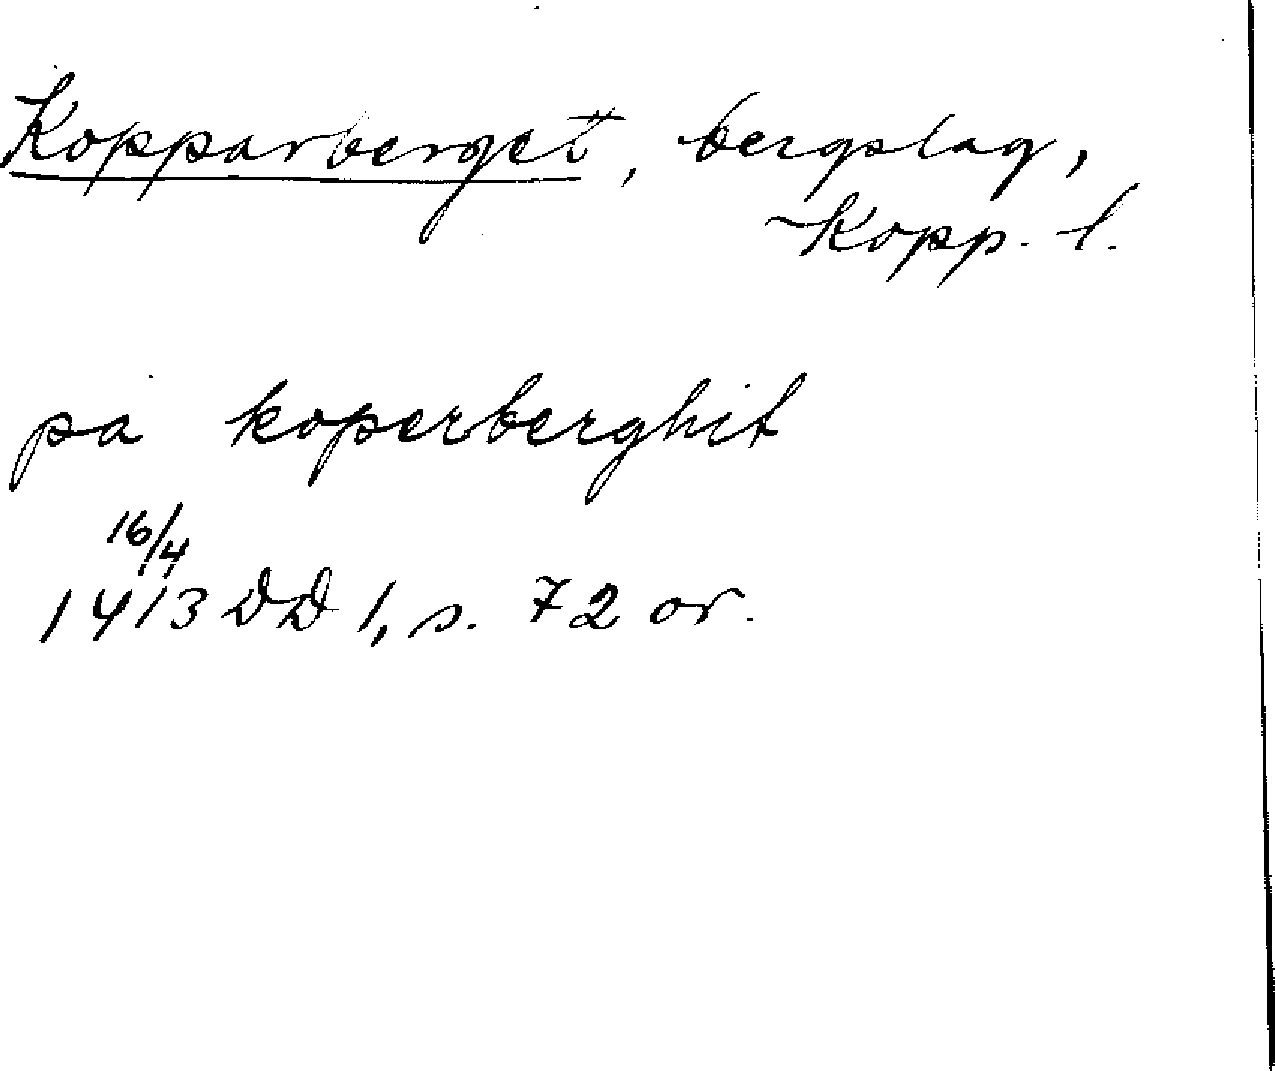 Kopparberget, bergslag,
Kopp. l.
pa koperberghit
16/4
1413 DD 1, s. 72 or.